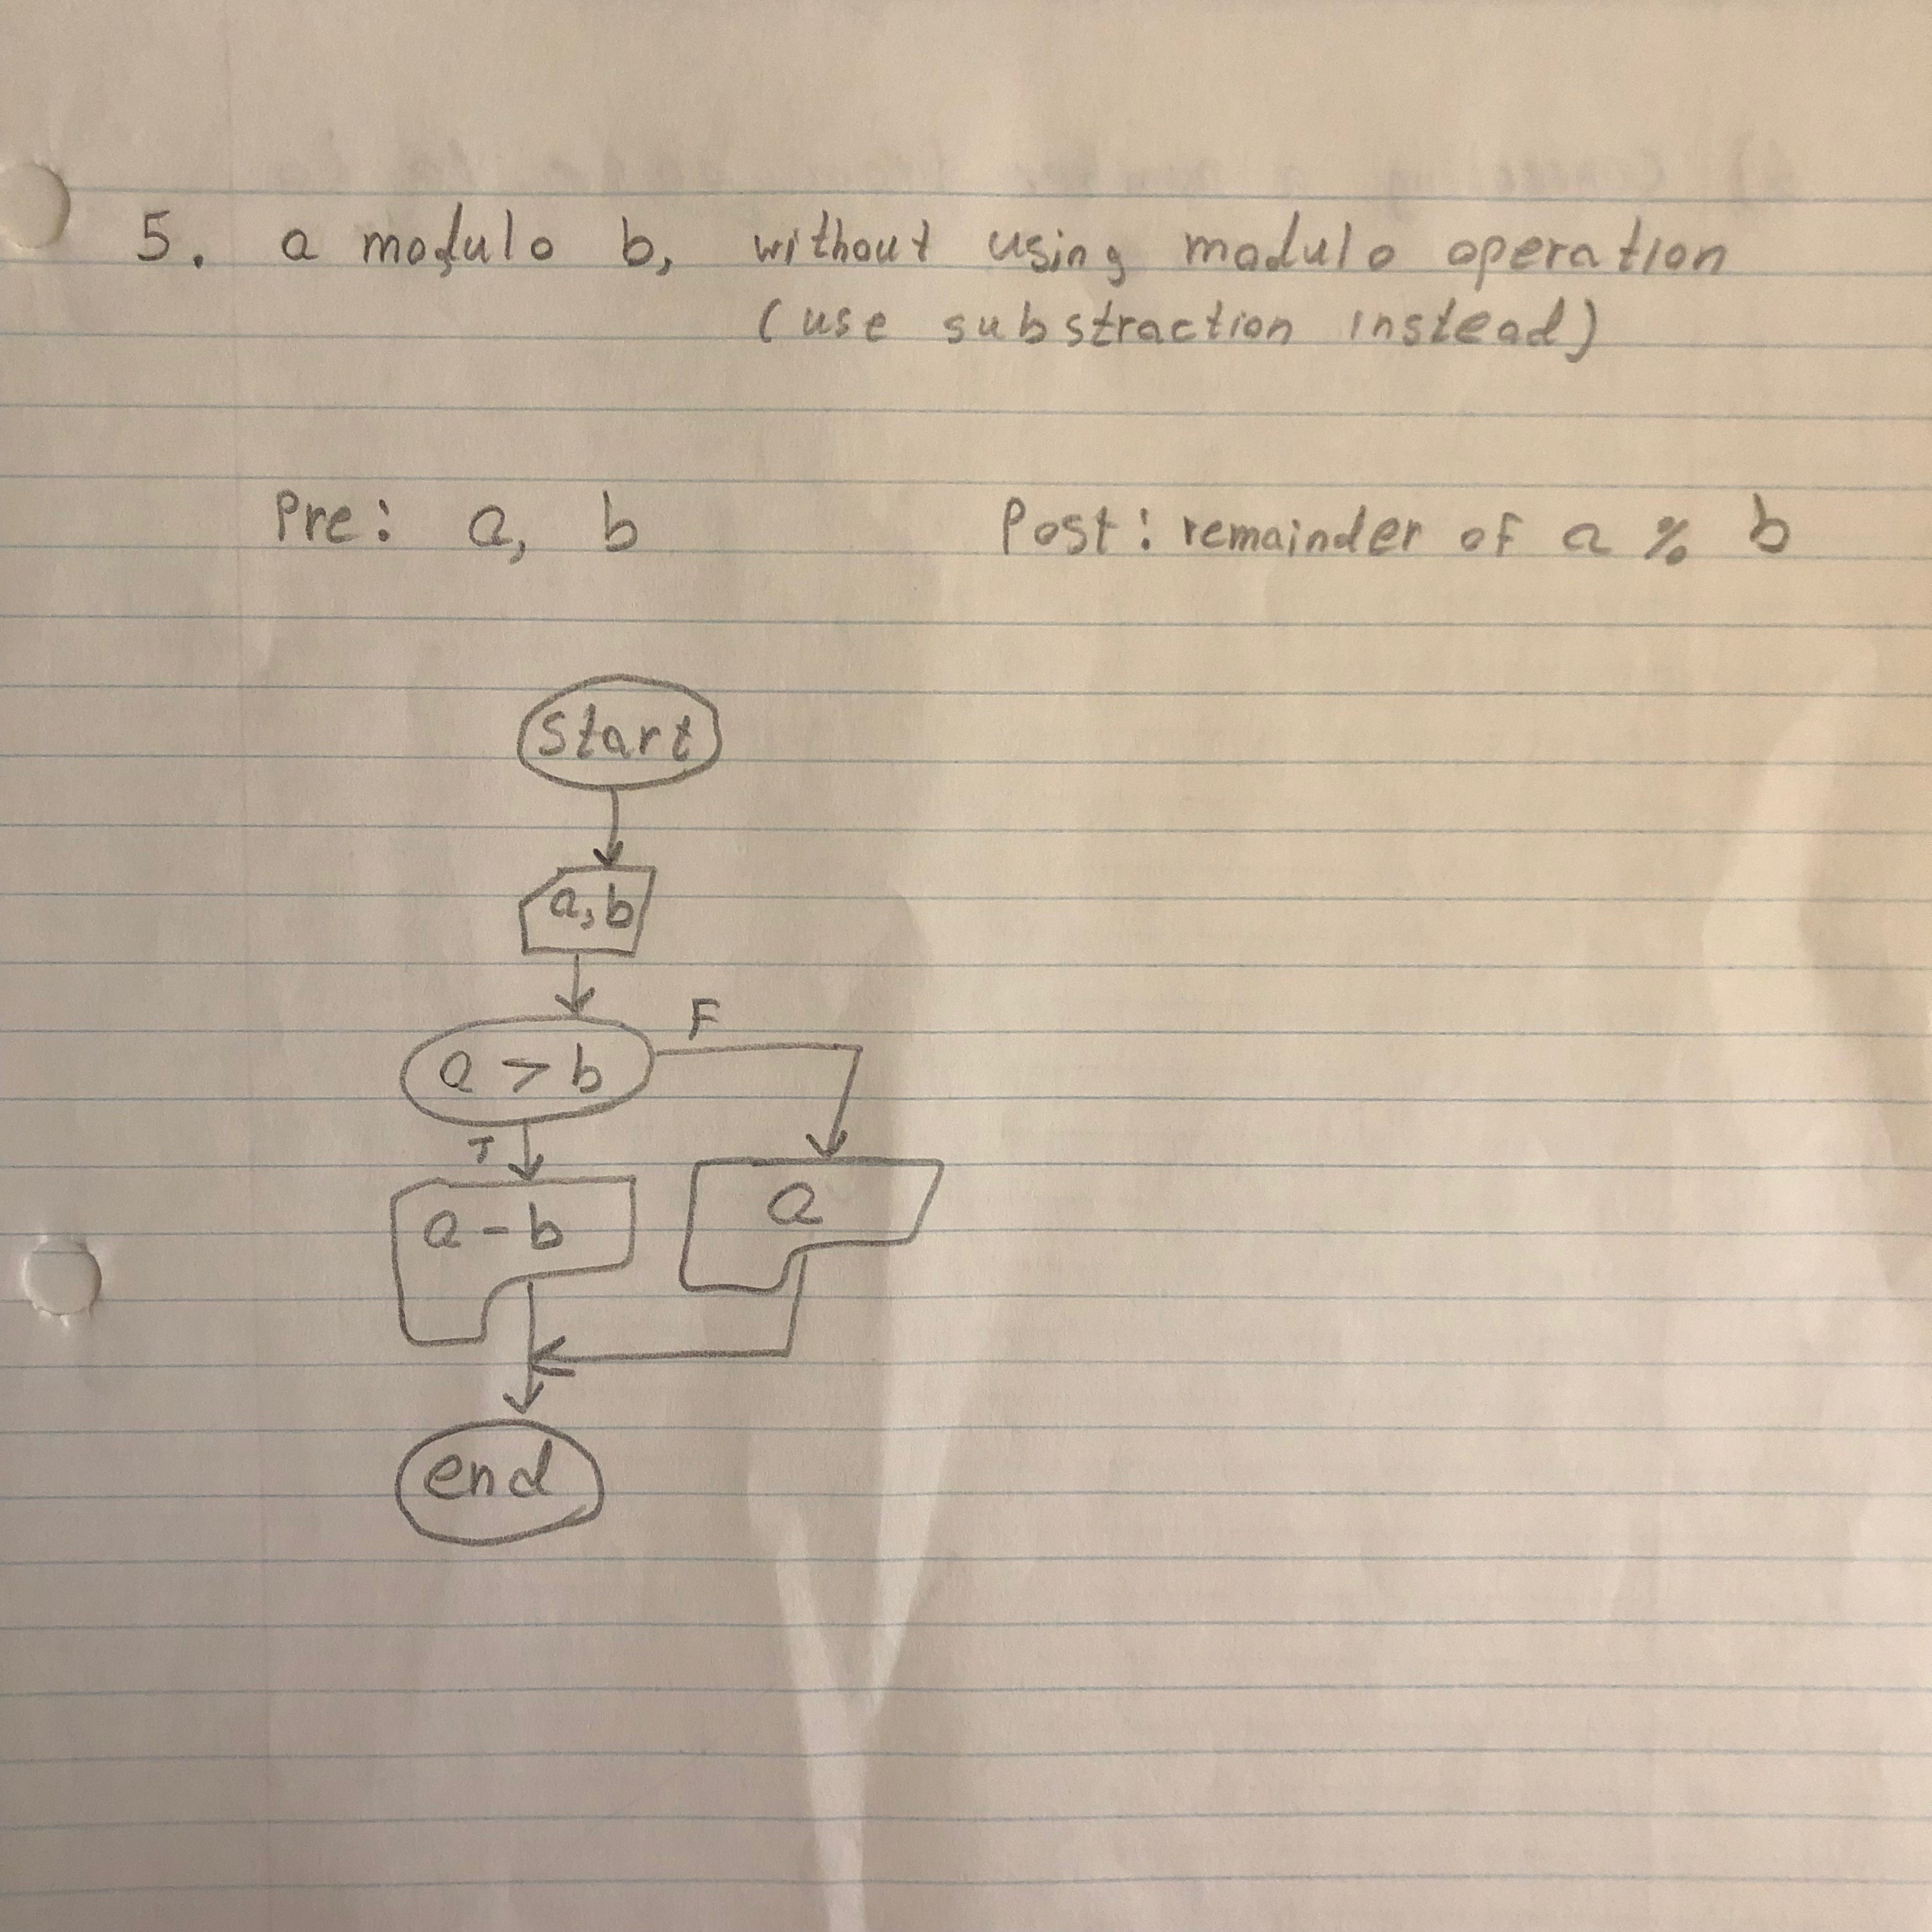 5. a modulo b, without using modulo operation
(use substraction instead)
Pre: a, b Post: remainder of a % b
Start
a, b
a > b F
T
a - b a
end